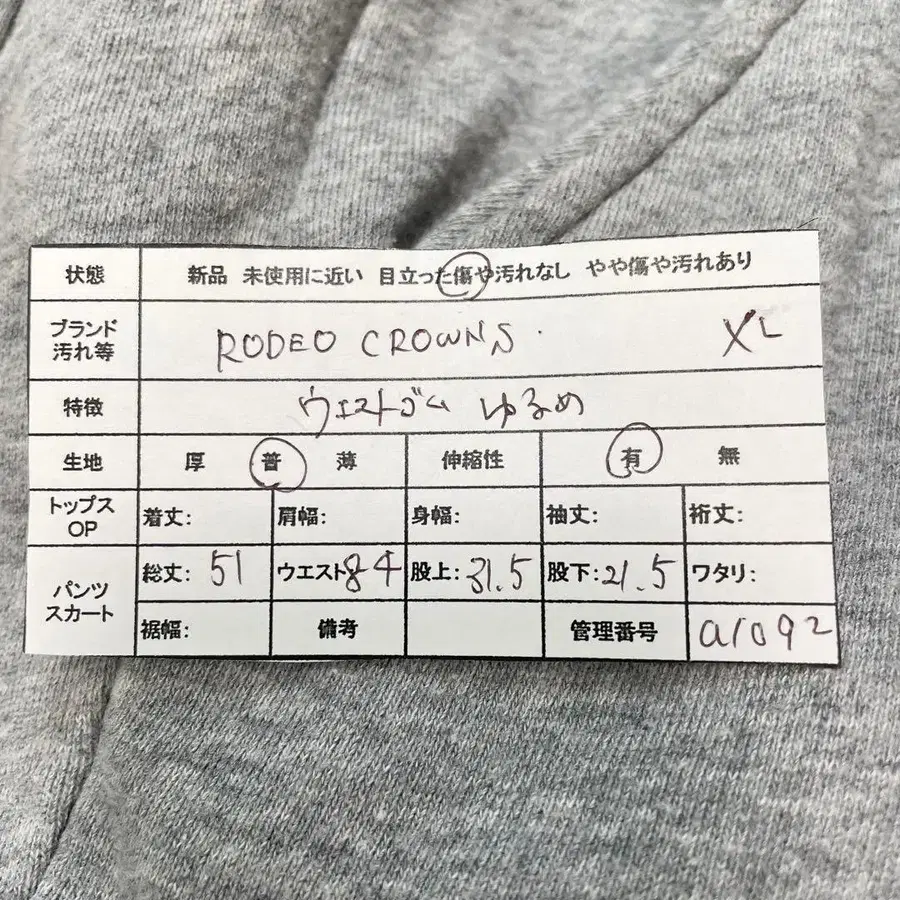 状態 新品 未使用に近い 目立った傷や汚れなし やや傷や汚れあり
ブランド
汚れ等 RODEO CROWNS XL
特徴 ウエストゴム ゆるめ
生地 厚 普 薄 伸縮性 有 無
トップス
OP 着丈: 肩幅: 身幅: 袖丈: 裄丈:
パンツ
スカート 総丈: 51 ウエスト84 股上: 31.5 股下: 21.5 ワタリ:
裾幅: 備考 管理番号 a1092